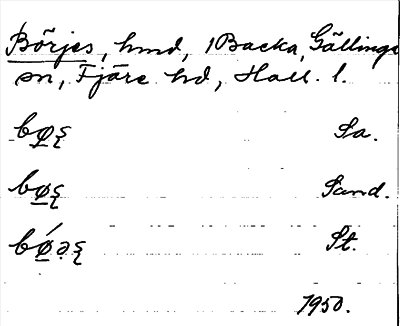 Börjes, hmd, 1 Backa, Gällinge
sn, Fjäre hd, Hall. l.
bø̲ȿ Sa.
bø̲ȿ Sand.
bǿ̲əȿ St.
1950.